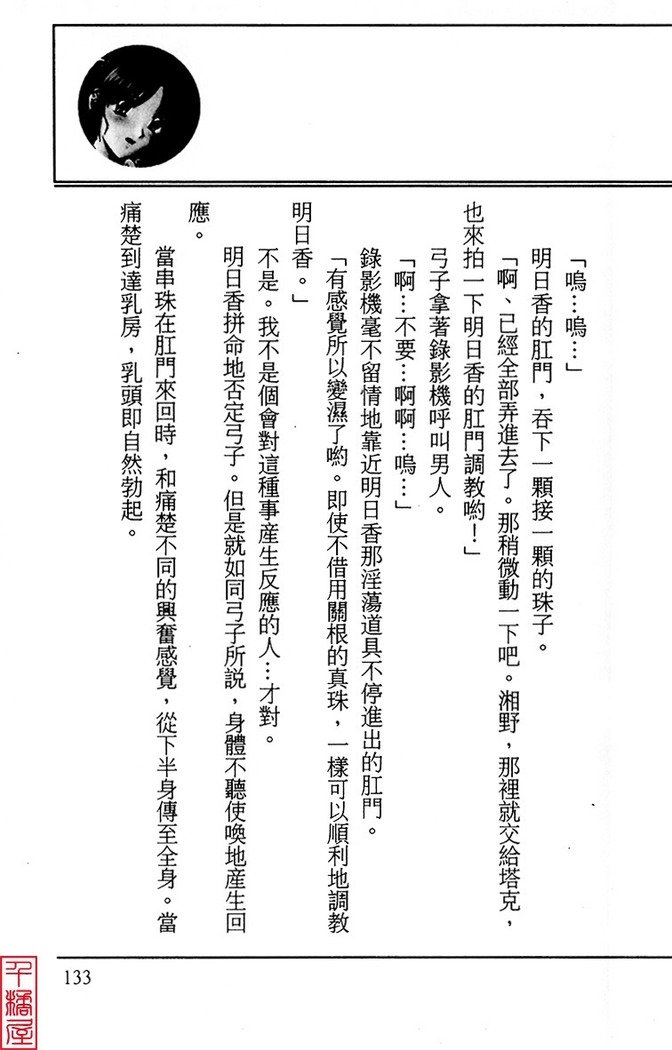 「嗚…嗚…」
明日香的肛門，吞下一顆接一顆的珠子。
「啊、已經全部弄進去了。那稍微動一下吧。湘野，那裡就交給塔克，
也來拍一下明日香的肛門調教喲！」
弓子拿著錄影機呼叫男人。
「啊…不要…啊啊…嗚…」
錄影機毫不留情地靠近明日香那淫蕩道具不停進出的肛門。
「有感覺所以變濕了喲。即使不借用關根的真珠，一樣可以順利地調教
明日香。」
不是。我不是個會對這種事産生反應的人…才對。
明日香拼命地否定弓子。但是就如同弓子所説，身體不聽使喚地産生回
應。
當串珠在肛門來回時，和痛楚不同的興奮感覺，從下半身傳至全身。當
痛楚到達乳房，乳頭即自然勃起。
133
千橘屋